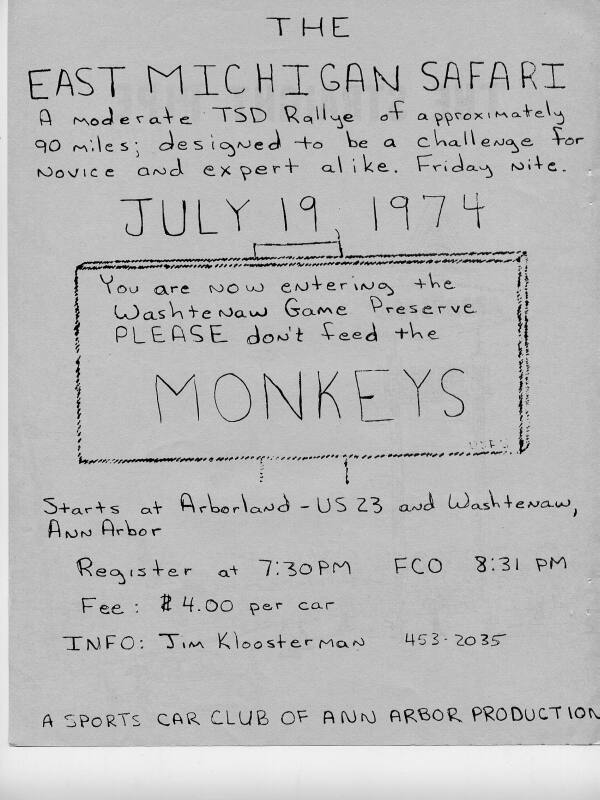 THE
EAST MICHIGAN SAFARI
A moderate TSD Rallye of approximately
90 miles; designed to be a challenge for
Novice and expert alike. Friday Nite.
JULY 19, 1974
You are now entering the
Washtenaw Game Preserve
PLEASE don't feed the
MONKEYS
Starts at Arborland - US 23 and Washtenaw,
Ann Arbor
Register at 7:30 PM FCO 8:31 PM
Fee: $4.00 per car
INFO: Jim Kloosterman 453-2035
A SPORTS CAR CLUB OF ANN ARBOR PRODUCTION